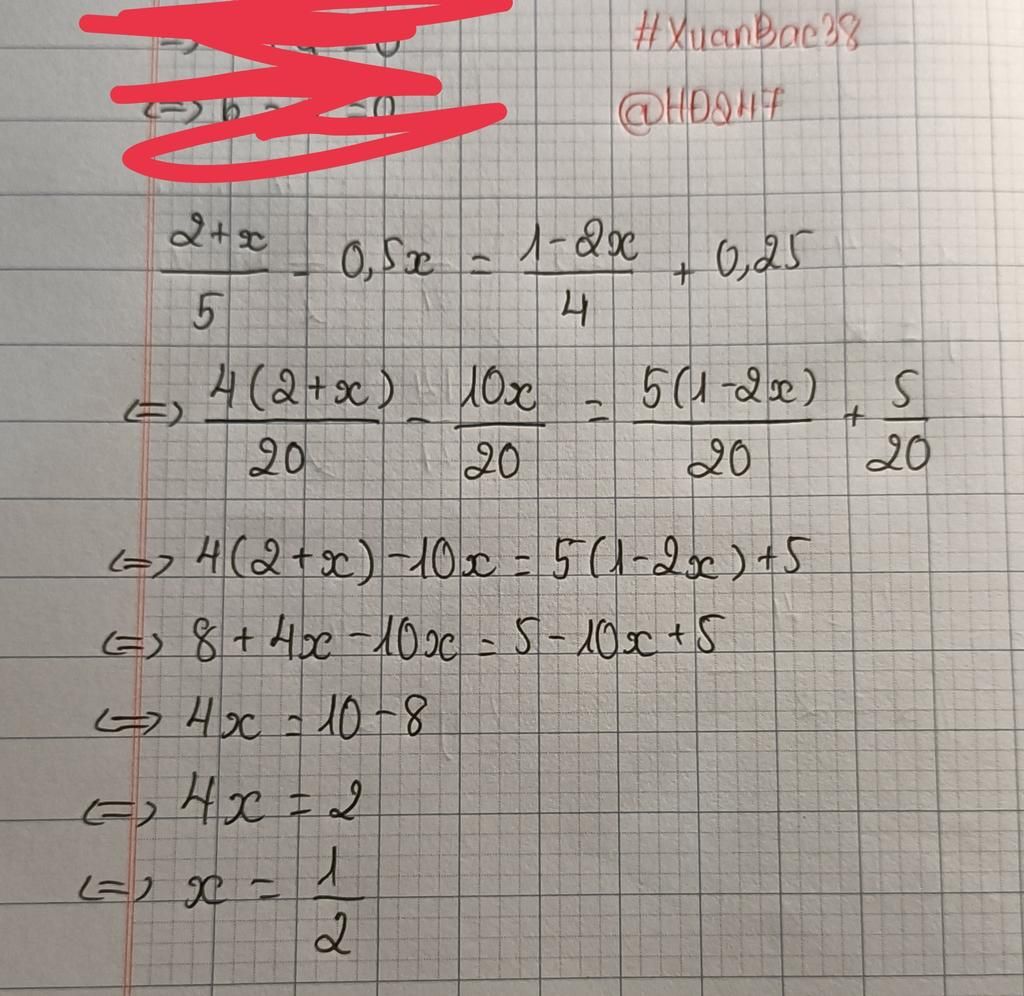 #XuanBac38
@HDQ47
(2+x)/5 - 0,5x = (1-2x)/4 + 0,25
<=> 4(2+x)/20 - 10x/20 = 5(1-2x)/20 + 5/20
<=> 4(2+x)-10x = 5(1-2x)+5
<=> 8+4x-10x = 5-10x+5
<=> 4x = 10-8
<=> 4x = 2
<=> x = 1/2